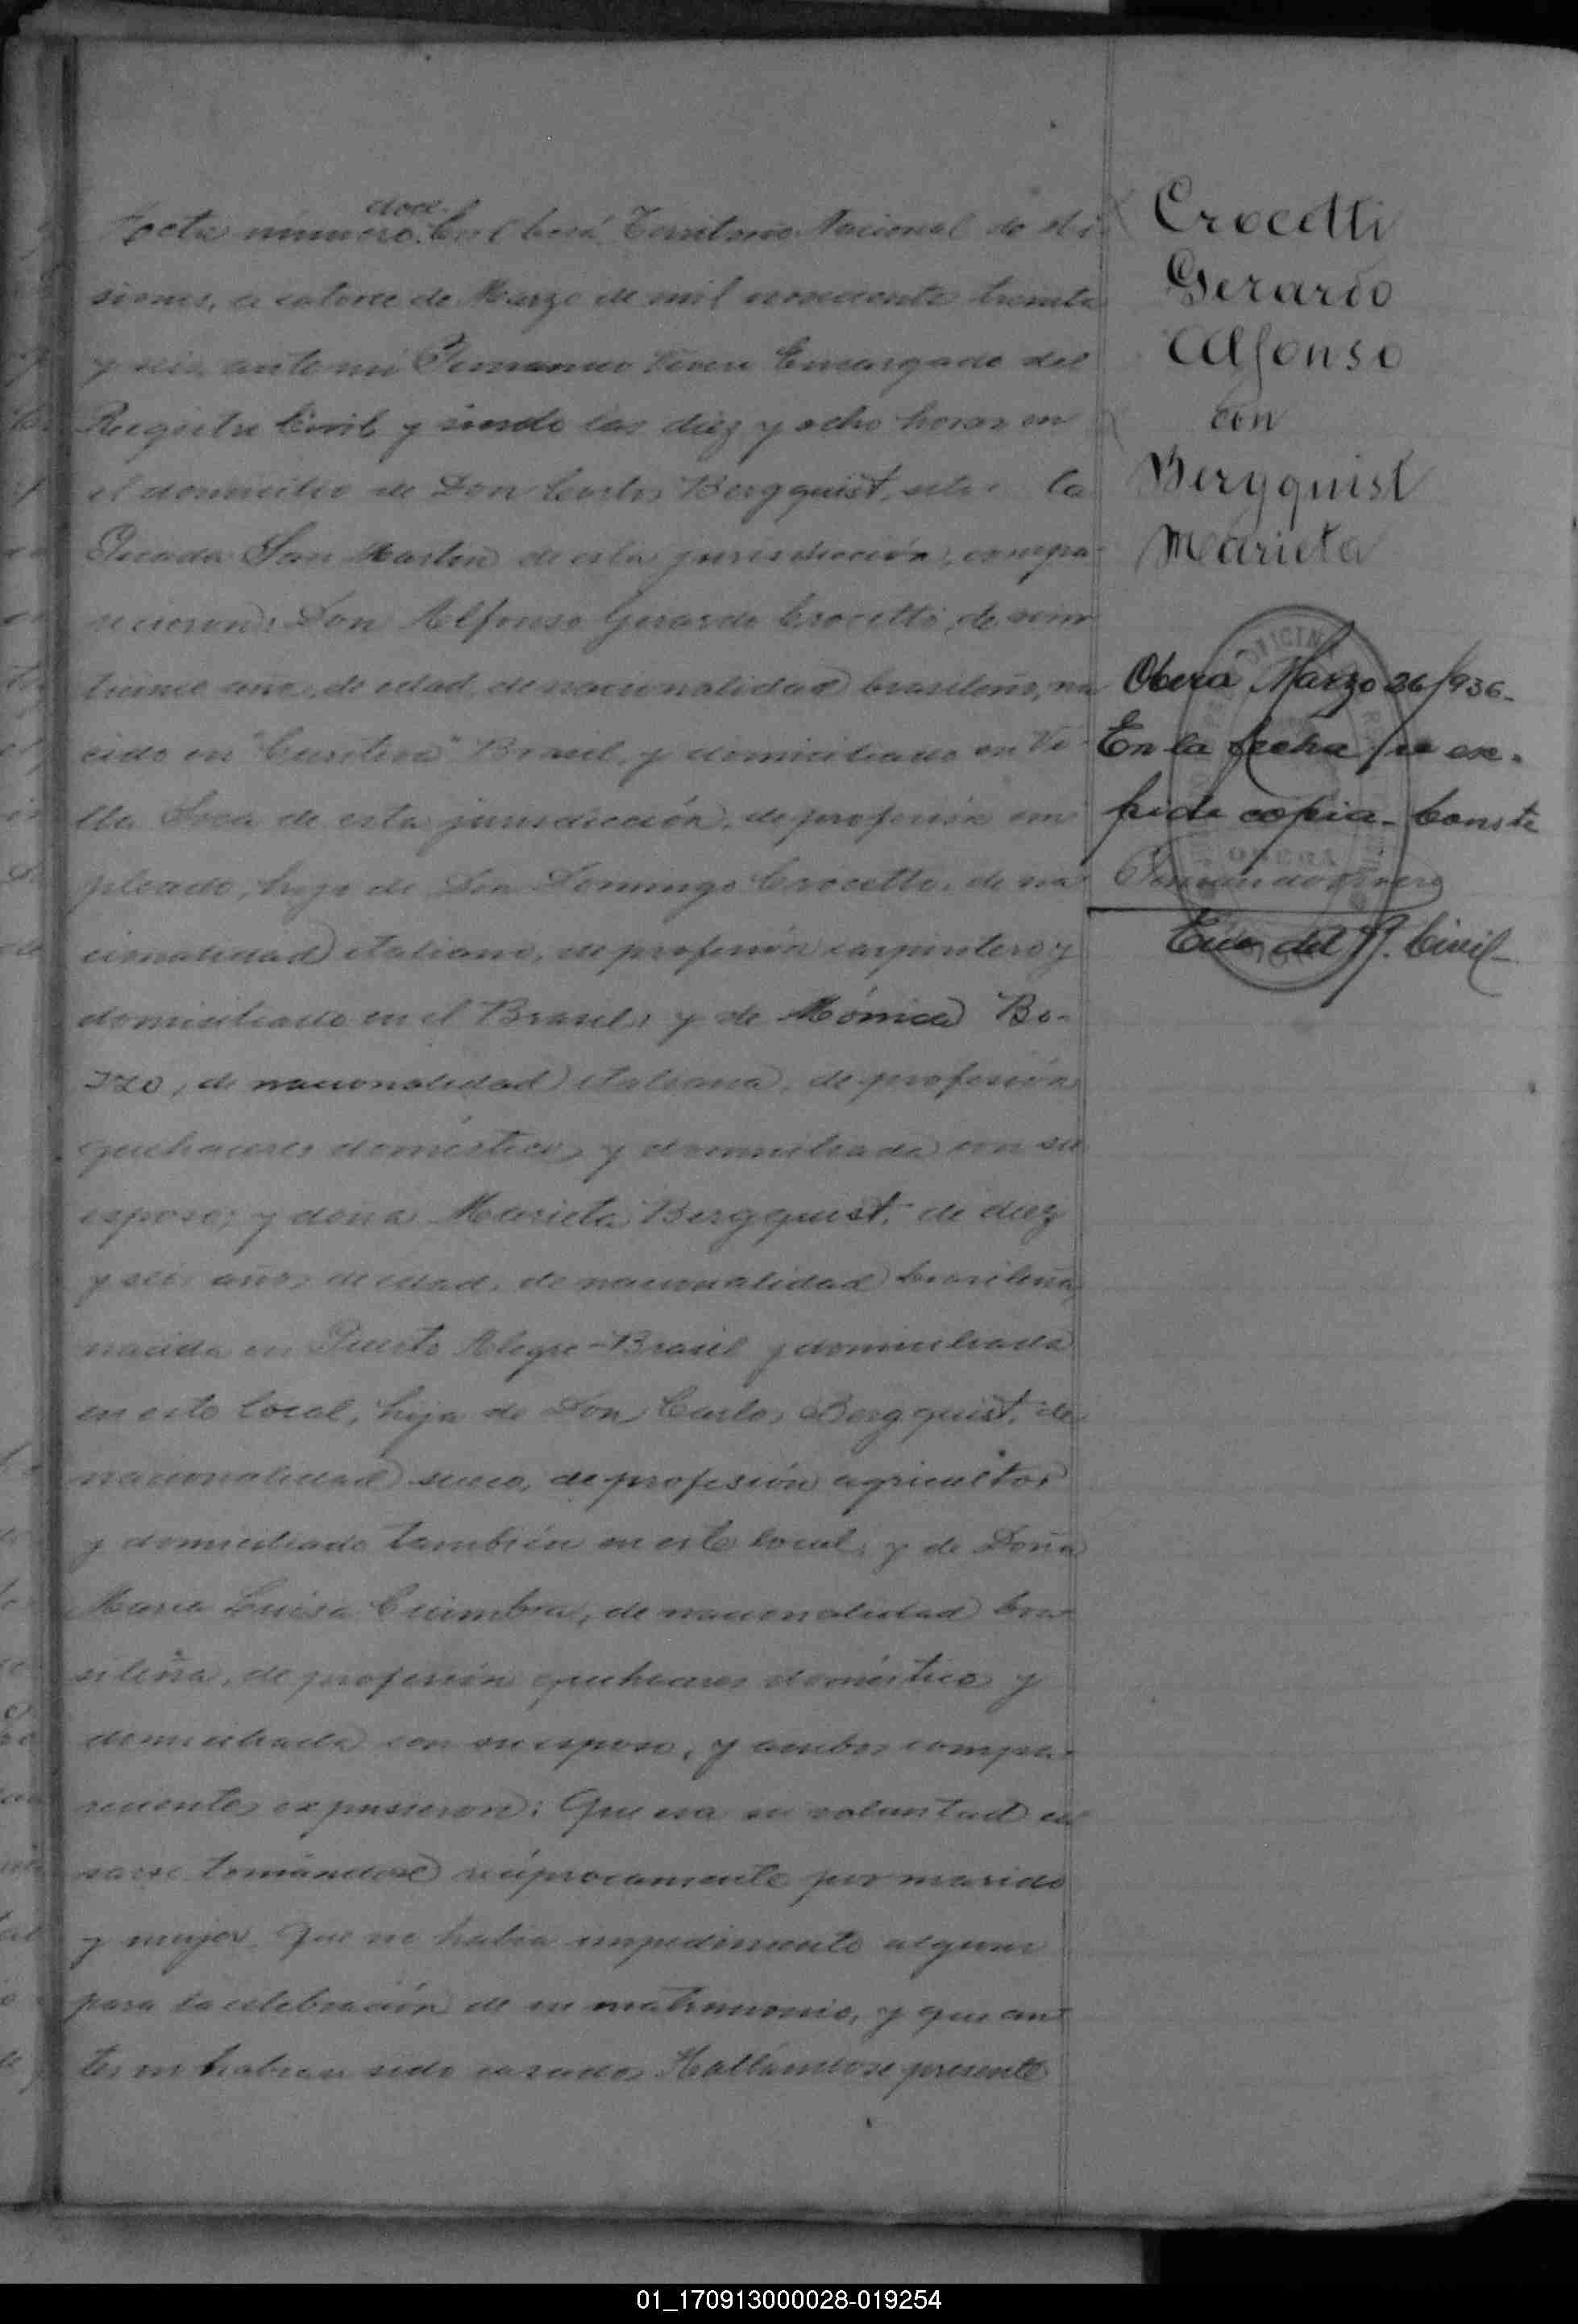 doce.
Acta número. En Oberá Territorio Nacional de Mi
siones, a catorce de Marzo de mil novecientos treinta
y seis, ante mi Fernando Vivero Encargado del
Registro Civil y siendo las diez y ocho horas en
el domicilio de Don Carlos Bergquist, sito la
Picada San Martin de esta jurisdicción, compa-
recieron: Don Alfonso Gerardo Crocetti, de vein
años de edad, de nacionalidad brasileño, na
cido en "Curitiva" Brasil, y domiciliado en Vi-
lla de esta jurisdicción, de profesión em
pleado, hijo de Don Domingo Crocetti, de na
cionalidad italiano, de profesión carpintero y
domiciliado en el Brasil, y de Mónica Bo-
zzo, de nacionalidad italiana, de profesión
quehaceres domésticos y domiciliada con su
esposo; y doña Marieta Bergquist, de diez
y seis años de edad, de nacionalidad brasileña,
nacida en Puerto Alegre-Brasil y domiciliada
en este local, hija de Don Carlos Bergquist, de
nacionalidad sueco, de profesión agricultor
y domiciliado también en este local, y de Doña
Maria Luisa Cuimbra, de nacionalidad bra-
sileña, de profesión quehaceres domésticos y
domiciliada con su esposo, y ambos compa-
recientes expusieron: Que era su voluntad ca
sarse tomándose recíprocamente por marido
y mujer. Que no habia impedimento alguno
para la celebración de su matrimonio, y que an-
tes no habian sido casados. Hallándose presente
Crocetti
Gerardo
Alfonso
con
Bergquist
Marieta
Obera Marzo 26/936-
En la fecha se ex-
pide copia- Conste
Fernando Vivero
Enc. del R. Civil-
OFICINA
OBERA
01_170913000028-019254